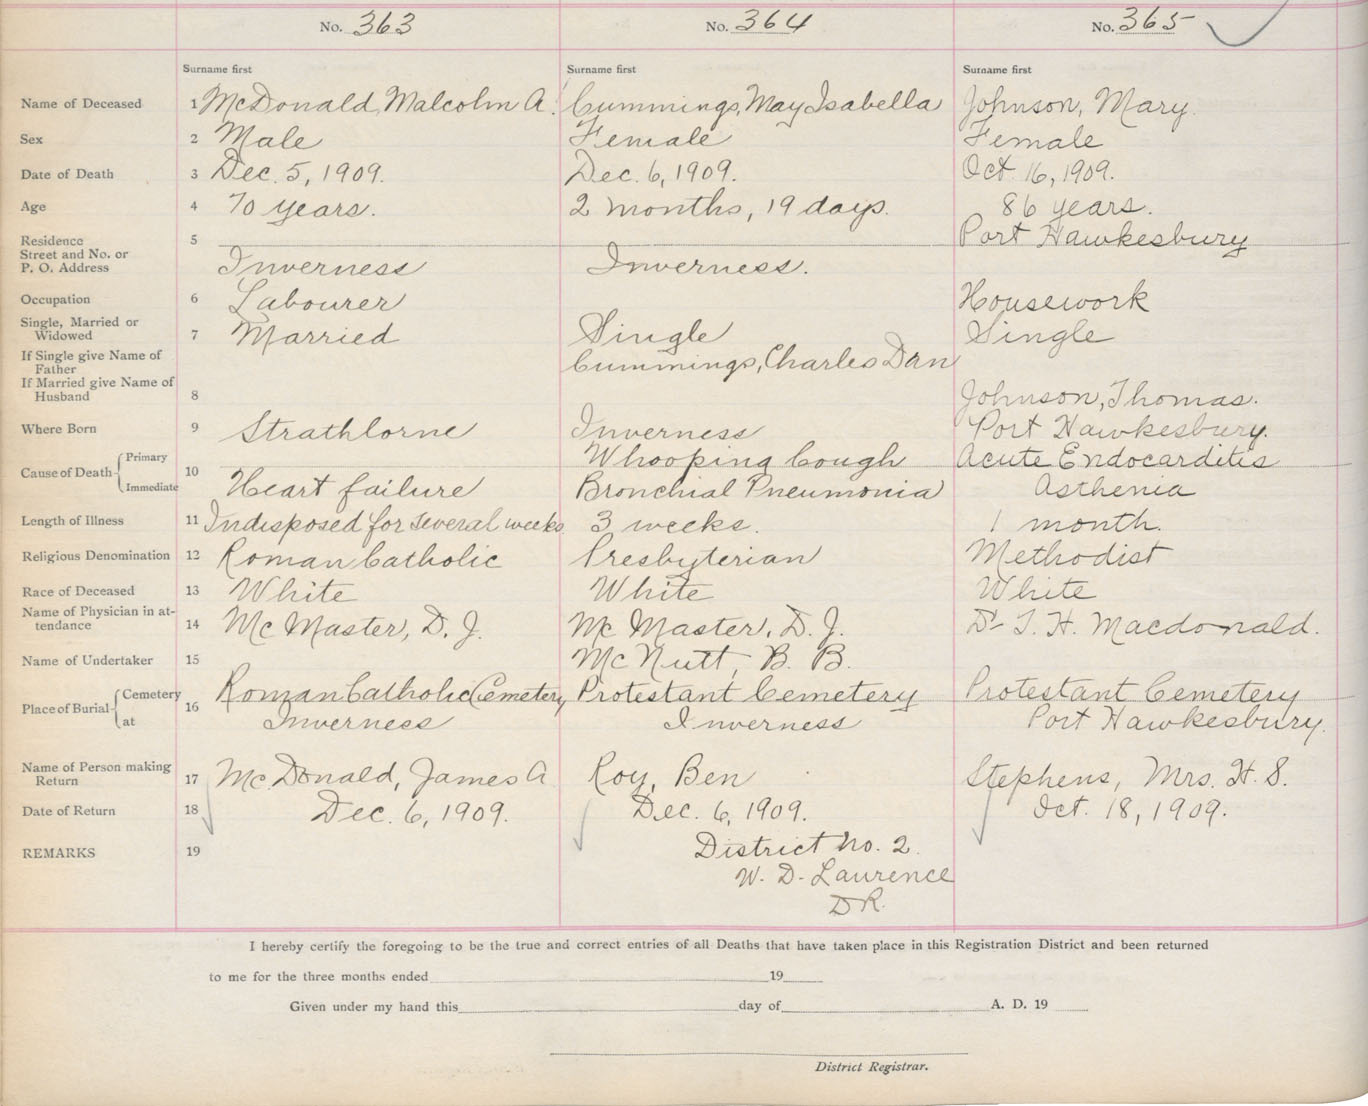 No. 363 No. 364 No. 365
Surname first Surname first Surname first
Name of Deceased 1 McDonald, Malcolm A. Cummings, May Isabella Johnson, Mary
Sex 2 Male Female Female
Date of Death 3 Dec. 5, 1909. Dec. 6, 1909. Oct. 16, 1909.
Age 4 70 years. 2 months, 19 days. 86 years.
Residence 5 Port Hawkesbury
Street and No. or
P. O. Address Inverness Inverness.
Occupation 6 Labourer Housework
Single, Married or
Widowed 7 Married Single Single
If Single give Name of
Father Cummings, Charles Dan
If Married give Name of
Husband 8 Johnson, Thomas.
Where Born 9 Strathlorne Inverness Port Hawkesbury.
Cause of Death 10 Primary Whooping Cough Acute Endocarditis
Immediate Heart failure Bronchial Pneumonia Asthenia
Length of Illness 11 Indisposed for several weeks 3 weeks. 1 month.
Religious Denomination 12 Roman Catholic Presbyterian Methodist
Race of Deceased 13 White White White
Name of Physician in at-
tendance 14 McMaster, D. J. McMaster, D. J. Dr T. H. Macdonald.
Name of Undertaker 15 McNutt, B. B.
Place of Burial 16 Cemetery Roman Catholic Cemetery Protestant Cemetery Protestant Cemetery
at Inverness Inverness Port Hawkesbury.
Name of Person making
Return 17 McDonald, James A Roy, Ben Stephens, Mrs. H. S.
Date of Return 18 Dec. 6, 1909. Dec. 6, 1909. Oct. 18, 1909.
REMARKS 19 District No. 2
W. D. Laurence
DR.
I hereby certify the foregoing to be the true and correct entries of all Deaths that have taken place in this Registration District and been returned
to me for the three months ended 19
Given under my hand this day of A. D. 19
District Registrar.